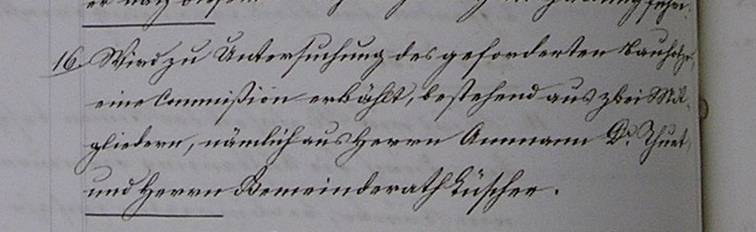 16. Wird zu Untersuchung des geforderten Bauholzes,
eine Commißion erwählt, bestehend aus zwei Mit-
gliedern, nämlich aus Herrn Ammann Dr.
und Herrn Gemeinderath Lüscher.